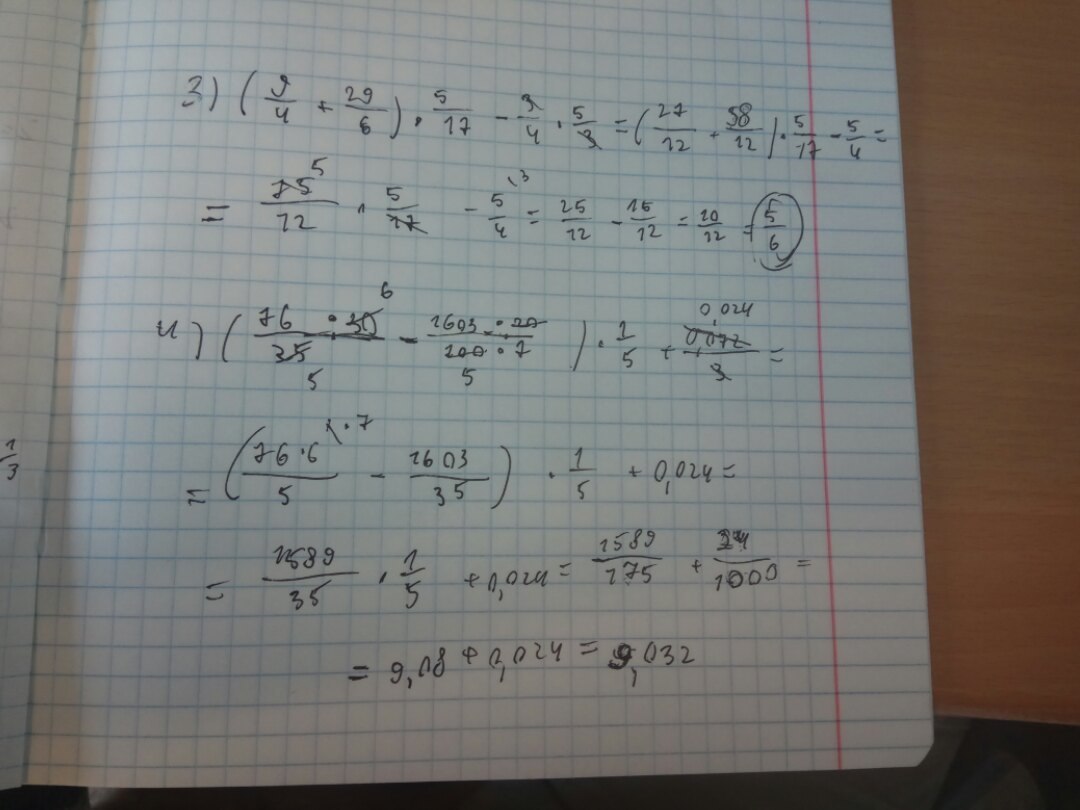 3) (9/4 + 29/6) · 5/17 - 9/4 · 5/9 = (27/12 + 58/12) · 5/17 - 5/4 =
= 75 5/12 · 5/17 - 5/4 ·3 = 25/12 - 15/12 = 10/12 = 5/6
4) (76 · 30 6/35 5 - 1603 · 20/200 · 7 5) · 1/5 + 0,072 0,024/3 =
= (76·6 ·7/5 - 1603/35) · 1/5 + 0,024 =
= 1589/35 · 1/5 + 0,024 = 1589/175 + 24/1000 =
= 9,08 + 0,024 = 9,032
1/3